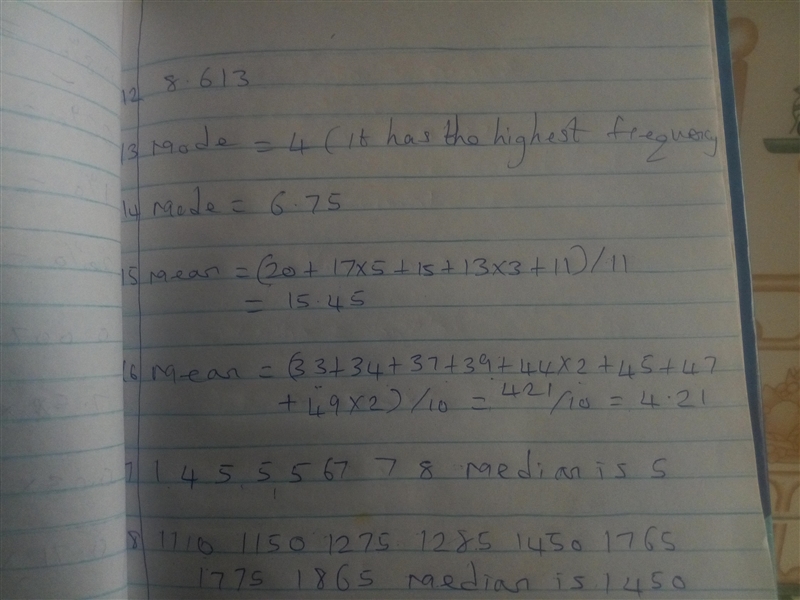 12 8.613
13 Mode = 4 (it has the highest frequency
14 Mode = 6.75
15 Mean = (20 + 17x5 + 15 + 13x3 + 11) / 11
= 15.45
16 Mean = (33+34+37+39+44x2+45+47
+ 49x2) /10 = 421/10 = 4.21
7 1 4 5 5 5 67 7 8 Median is 5
8 1110 1150 1275 1285 1450 1765
1775 1865 Median is 1450